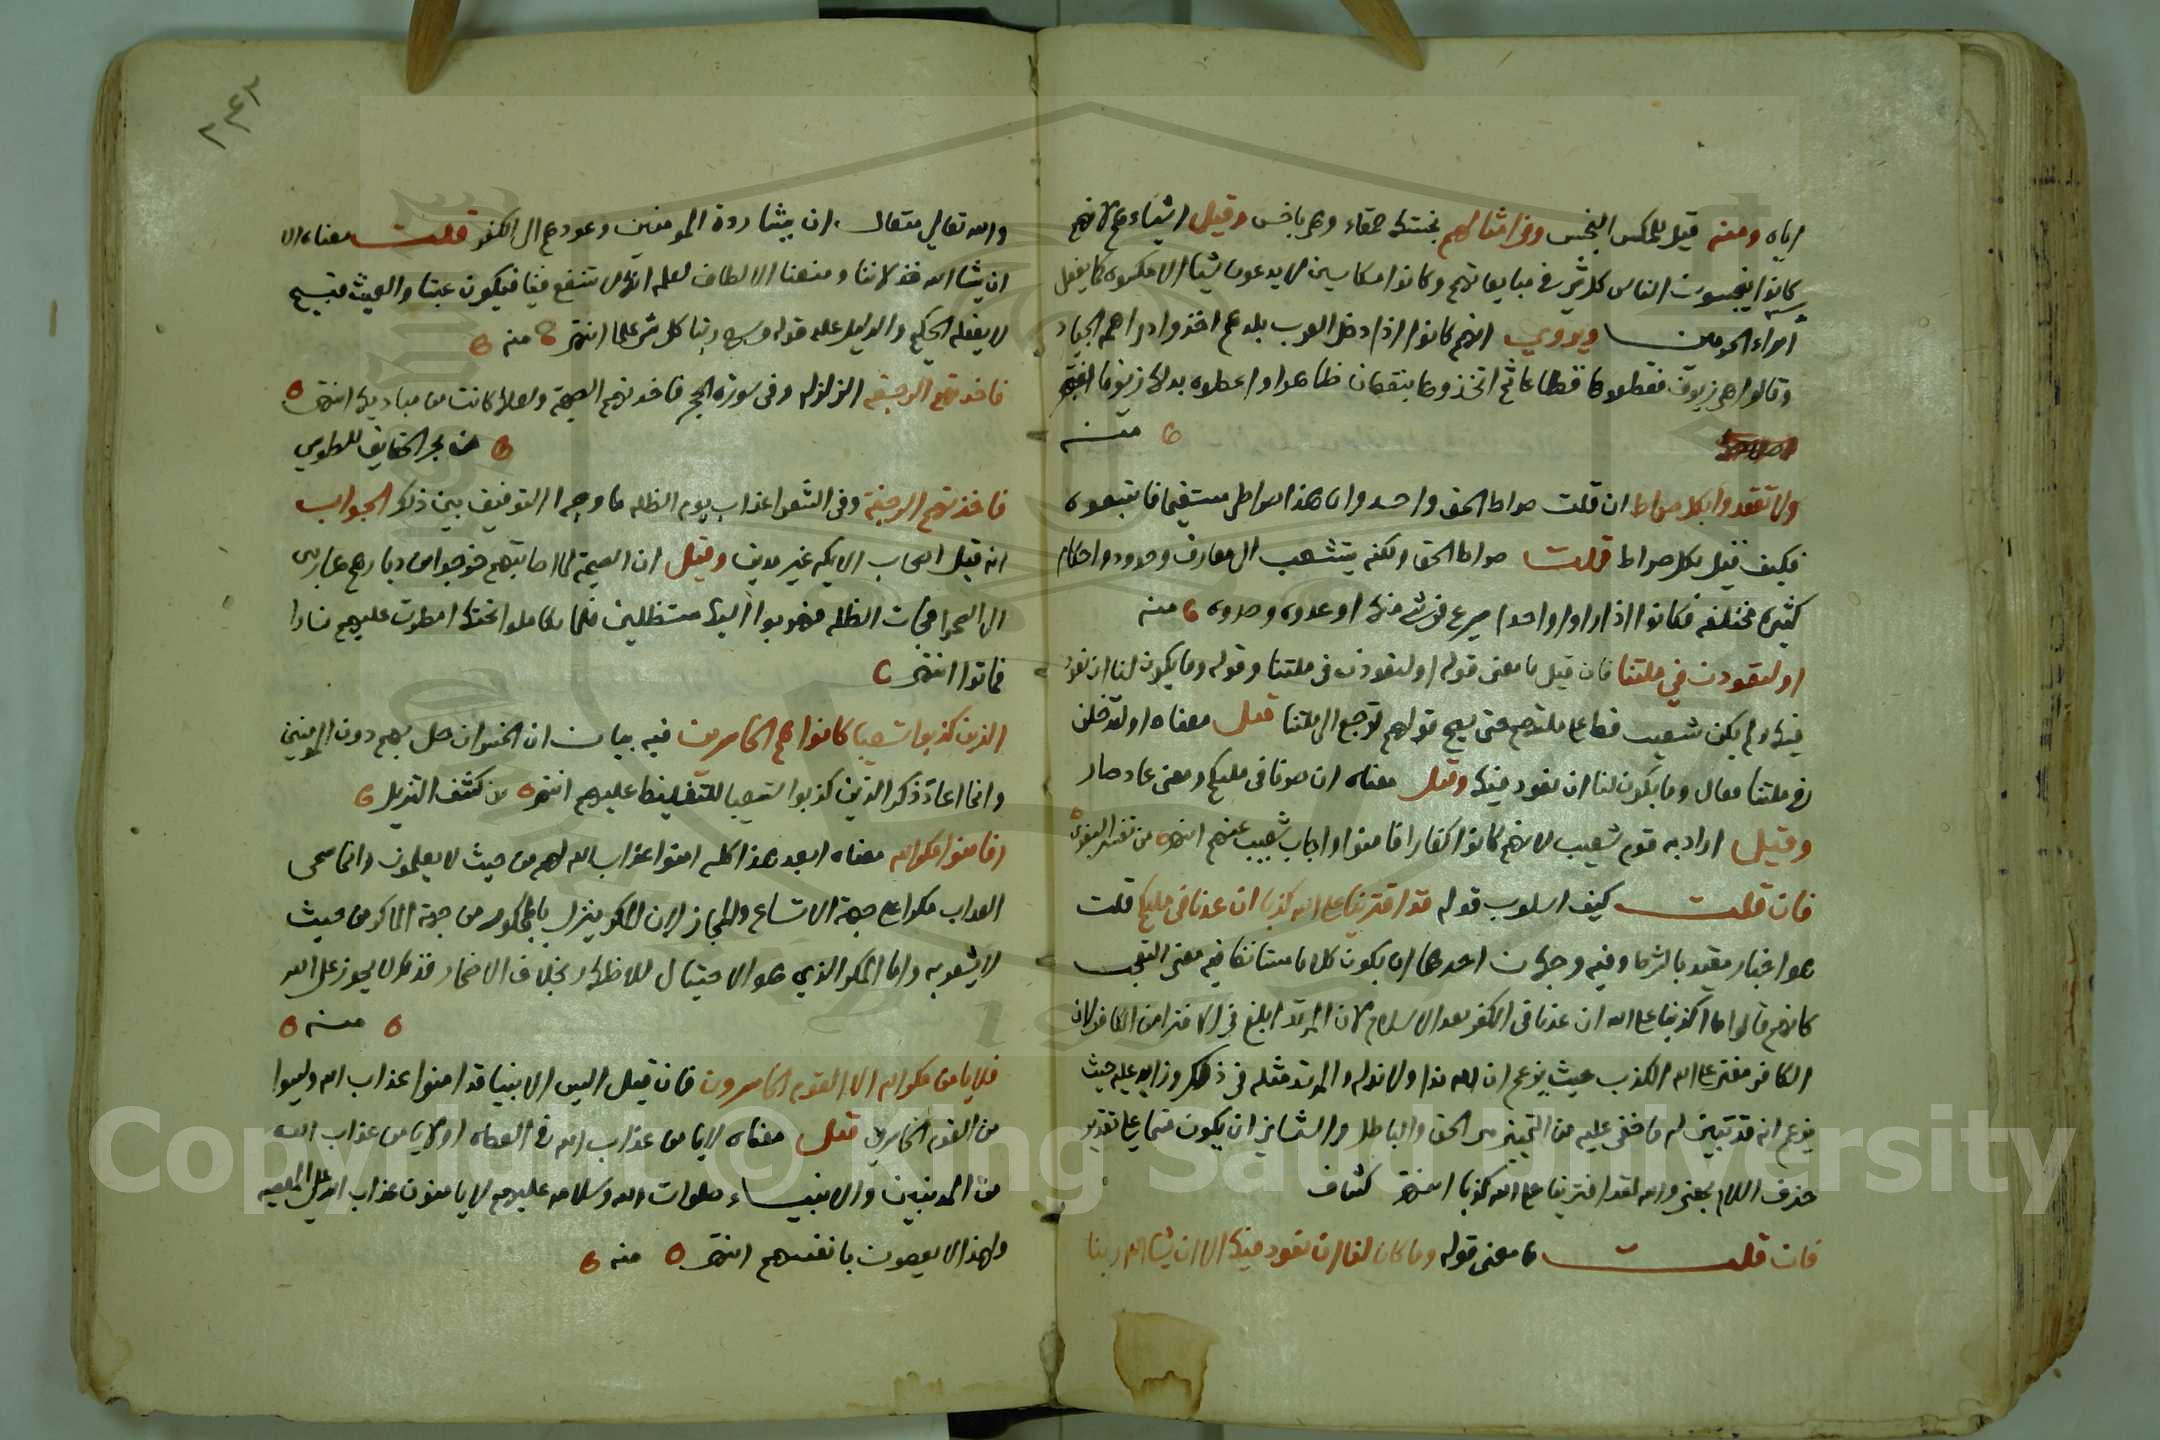 اياه ومنه قيل للمكس البخس وفي امثالهم تحسبها حمقاء وهي باخس وقيل اشياءهم لانهم
كانوا يبخسون الناس كل شي في مبايعاتهم وكانوا مكاسين لا يدعون شيا الا مكسوه كما يفعل
امراء الحرمين ويروي انهم كانوا اذا دخل الغريب بلدهم اخذوا دراهمه الجياد
وقالوا هي زيوف فقطعوها قطاعا ثم اخذوها بنقصان ظاهر او اعطوه بدلها زيوفا انتهى
منه
ولا تقعدوا بكل صراط ان قلت صراط الحق واحد وان هذا صراطي مستقيما فاتبعوه
فكيف قيل بكل صراط قلت صراط الحق ولكنه يتشعب الى معارف وحدود واحكام
كثيرة مختلفة فكانوا اذا راوا واحدا يسرع في شي منها اوعدوه وصدوه منه
او لتعودن في ملتنا فان قيل ما معنى قوله او لتعودن في ملتنا وقوله وما يكون لنا ان نعود
فيها ولم يكن شعيب قط على ملتهم حتى يصح قولهم ترجع الى ملتنا قيل معناه او لتدخلن
في ملتنا فقال وما يكون لنا ان نعود فيها وقيل معناه ان صرنا في ملتكم ومعنى عاد صار
وقيل اراد به قوم شعيب لانهم كانوا كفارا فامنوا واجاب شعيب عنهم انتهى من تفسير البغوي
فان قلت كيف اسلوب قوله قد افترينا على الله كذبا ان عدنا في ملتكم قلت
هو اخبار مقيد بالشرط وفيه وجهان احدهما ان يكون كلاما مستانفا فيه معنى التعجب
كانهم قالوا ما اكذبنا على الله ان عدنا في الكفر بعد الاسلام لان المرتد ابلغ في الافترا من الكافر لان
الكافر مفتر على الله الكذب حيث يزعم ان لله ندا ولا ند له والمرتد مثله في ذلك وزايد عليه حيث
يزعم انه قد تبين له ما خفي عليه من التمييز بين الحق والباطل والثاني ان يكون قسما على تقدير
حذف اللام بمعنى والله لقد افترينا على الله كذبا انتهى كشاف
فان قلت ما معنى قوله وما كان لنا ان نعود فيها الا ان يشا الله ربنا
٢٤٣
والله تعالى متعال ان يشا ردة المومنين وعودهم الى الكفر قلت معناه الا
ان يشا الله خذلاننا ومنعنا الالطاف لعلمه انها لا تنفع فينا فيكون عبثا والعبث قبيح
لا يفعله الحكيم والدليل عليه قوله وسع ربنا كل شي علما انتهى منه
فاخذتهم الرجفة الزلزلة وفي سورة الحجر فاخذتهم الصيحة ولعلها كانت من مباديها انتهى
من بحر الحقايق للطوسي
فاخذتهم الرجفة وفي الشعرا عذاب يوم الظلة ما وجه التوفيق بين ذلك الجواب
انه قيل اصحاب الايكة غير مدين وقيل ان الصيحة لما اصابتهم خرجوا من ديارهم هاربين
الى الصحرا فجات الظلة فهربوا اليها مستظلين فلما تكاملوا تحتها امطرت عليهم نارا
فماتوا انتهى
الذين كذبوا شعيبا كانوا هم الخاسرين فيه بيان ان الخسران حل بهم دون المومنين
وانما اعاد ذكر الذين كذبوا شعيبا للتغليظ عليهم انتهى من كشف التنزيل
افامنوا مكر الله معناه ابعد هذا كله امنوا عذاب الله لهم من حيث لا يعلمون وانما سمى
العذاب مكرا على جهة الاتساع والمجاز لان المكر ينزل بالممكور من جهة الماكر من حيث
لا يشعر به واما المكر الذي هو الاحتيال للاظهار بخلاف الاضمار فذلك لا يجوز على الله
منه
فلا يامن مكر الله الا القوم الخاسرون فان قيل اليس الانبيا قد امنوا عذاب الله وليسوا
من القوم الخاسرين قيل معناه لا يامن عذاب الله في العصاه او لا يامن عذاب الله
من المذنبين والانبياء صلوات الله وسلامه عليهم لا يامنون عذاب الله على المعصية
ولهذا لا يعصون بانفسهم انتهى منه
Copyright © King Saud University